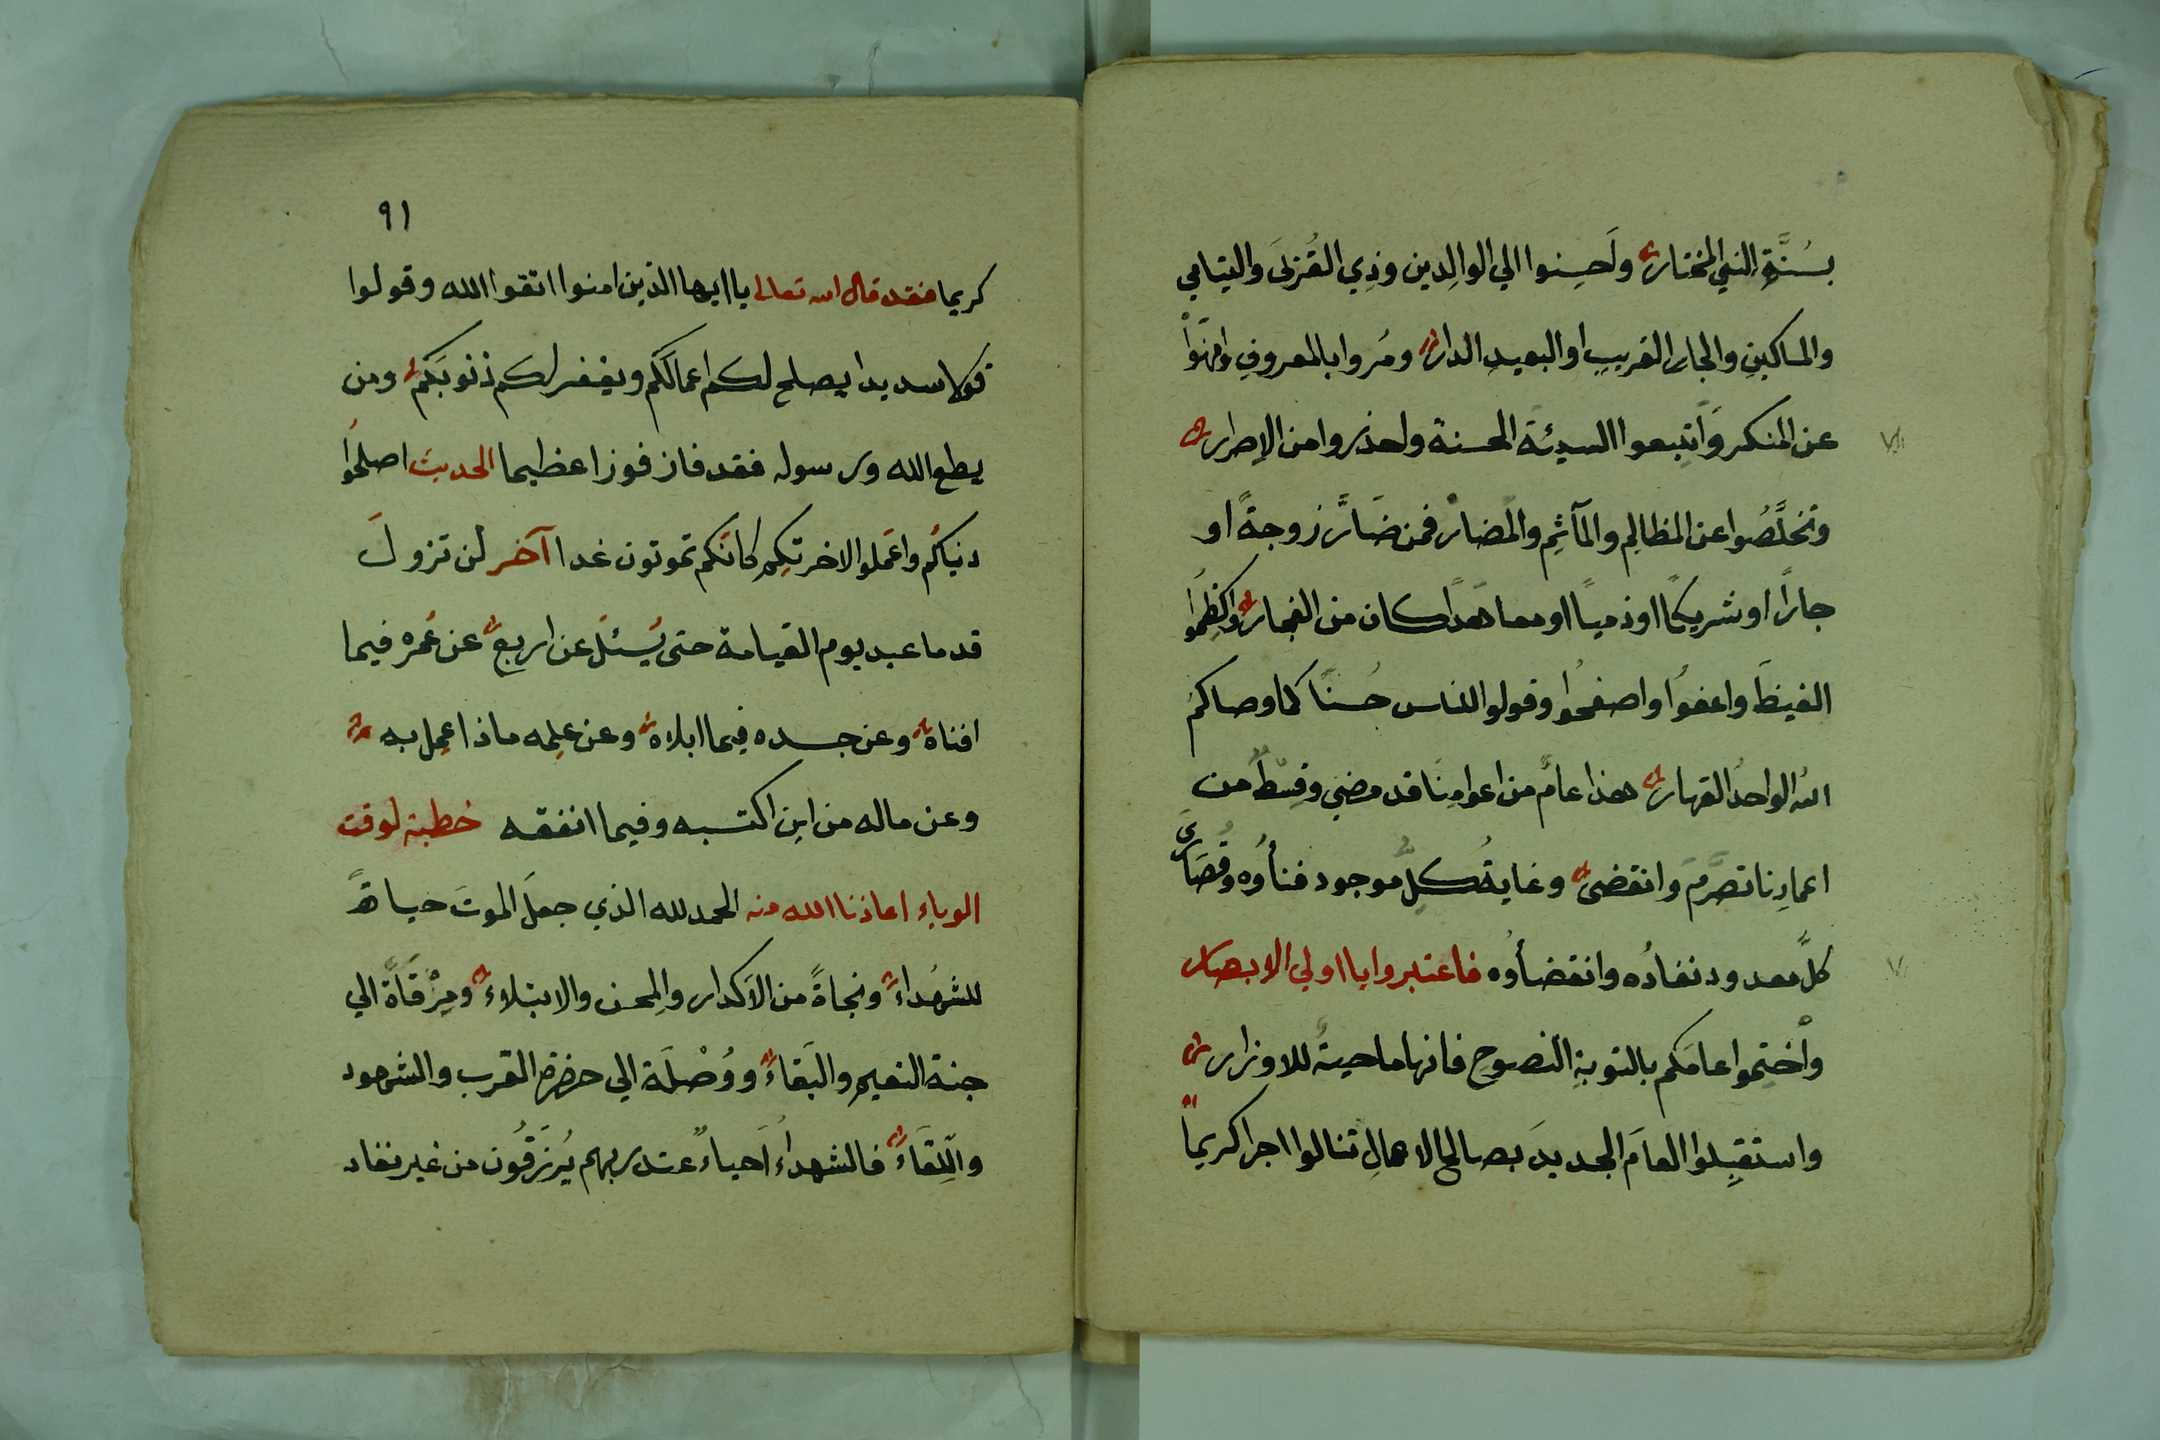 بسُنَّةِ النبي المختار ولَحسِنوا الي الوالِدين وذِي القُربَى واليتامي
والمساكينِ والجارِ القريبِ او البعيدِ الدار ومُروا بالمعروفِ وانهَوْا
عن المنكر وَاتبِعوا السيئة الحسنة ولحذروا من الاِصرار
وتخلَّصُوا عن المظالِمِ والمآثِمِ والمضارْ فمن ضَارَّ زوجةً او
جارًا او شريكًا او ذميًا او معاهَدًا كان من الفجار واكظِمُوا
الغيظَ واعفوُا واصفحُوا وقولوا للناس حُسنًا كما وصاكمُ
اللهُ الواحدُ القهار هذا عامٌ من اعوامِنَا قد مضي وقِسْطٌ من
اعمارِنا تصَرَّمَ وانقضى وغايةُ كلِّ موجود فنأوُه وقُصَارَى
كلِّ معدود نفادُه وانقضأوُه فاعتبروا يا اولي الابصار
واخْتِموا عامَكم بالتوبةِ النصوحِ فانها ماحيةٌ للاوزار
واستقبِلوا العامَ الجديدَ بصالح الاعمالِ تنالوا اجرا كريمًا
٩١
كريما فقد قال الله تعالى يا ايها الذين امنوا اتقوا الله وقولوا
قولا سديدا يصلح لكم اعمالكم ويغفر لكم ذنوبَكم ومن
يطع الله ورسوله فقد فاز فوزا عظيما الحديث اصلحُوا
دنياكُم واعَملوا لاخرتكِم كانَكم تموتون غدا آخر لن تزولَ
قدما عبد يوم القيامة حتى يُسئلَ عن اربع عن عُمره فيما
افناه وعن جسده فِيما ابلاه وعن علِمه ماذا عمِل به
وعن ماله من اين اكتسبه وفيما انفقه خُطبة لوقت
الوباء اعاذنا الله منه الحمد لله الذي جعلَ الموتَ حياةً
للشهُداء ونجاةً من الاَكدار والِمحن والابتلاء ومِرْقَاةً الي
جنة النعيمِ والبَقاء ووُصْلَة الي حضرة القرب والشهود
واللِّقَاء فالشهداُء اَحياءٌ عند ربهم يُرزَقُون من غير نفاد